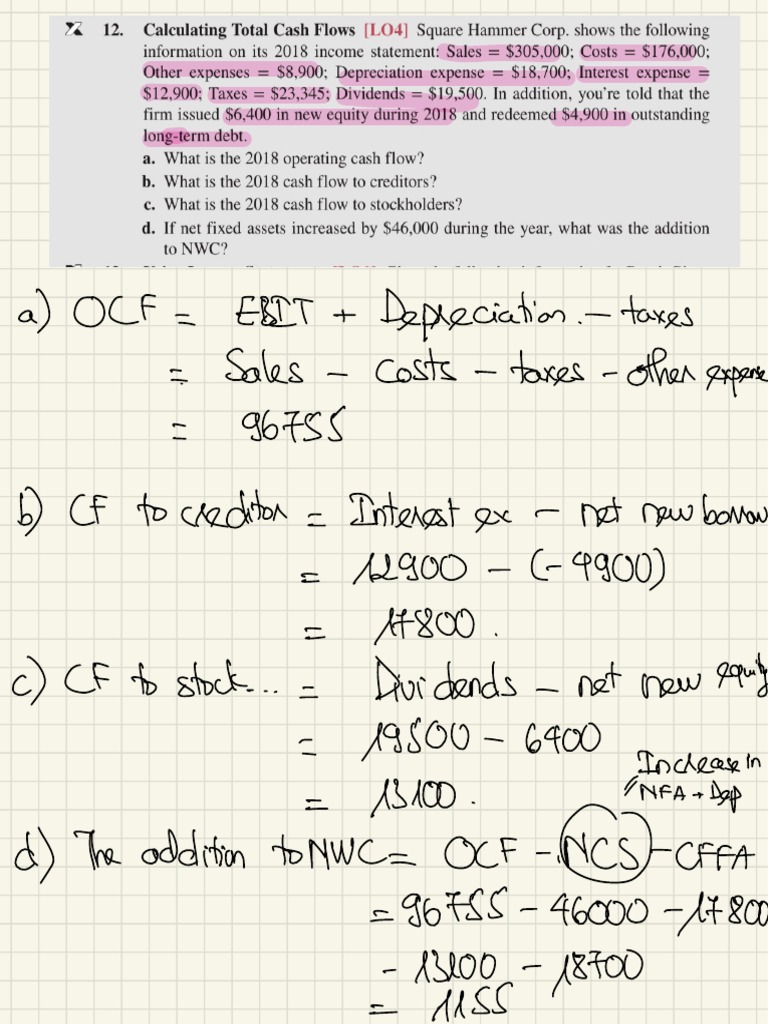 12. Calculating Total Cash Flows [LO4] Square Hammer Corp. shows the following
information on its 2018 income statement: Sales = $305,000; Costs = $176,000;
Other expenses = $8,900; Depreciation expense = $18,700; Interest expense =
$12,900; Taxes = $23,345; Dividends = $19,500. In addition, you're told that the
firm issued $6,400 in new equity during 2018 and redeemed $4,900 in outstanding
long-term debt.
a. What is the 2018 operating cash flow?
b. What is the 2018 cash flow to creditors?
c. What is the 2018 cash flow to stockholders?
d. If net fixed assets increased by $46,000 during the year, what was the addition
to NWC?
a) OCF = EBIT + Depreciation - taxes
= Sales - costs - taxes - other expense
= 96755
b) CF to creditor = Interest ex - net new borrow
= 12900 - (-4900)
= 17800.
c) CF to stock... = Dividends - net new equity
= 19500 - 6400
= 13100.
Increase in
NFA + Dep
d) The addition to NWC = OCF - NCS - CFFA
= 96755 - 46000 - 17800
- 13100 - 18700
= 1155